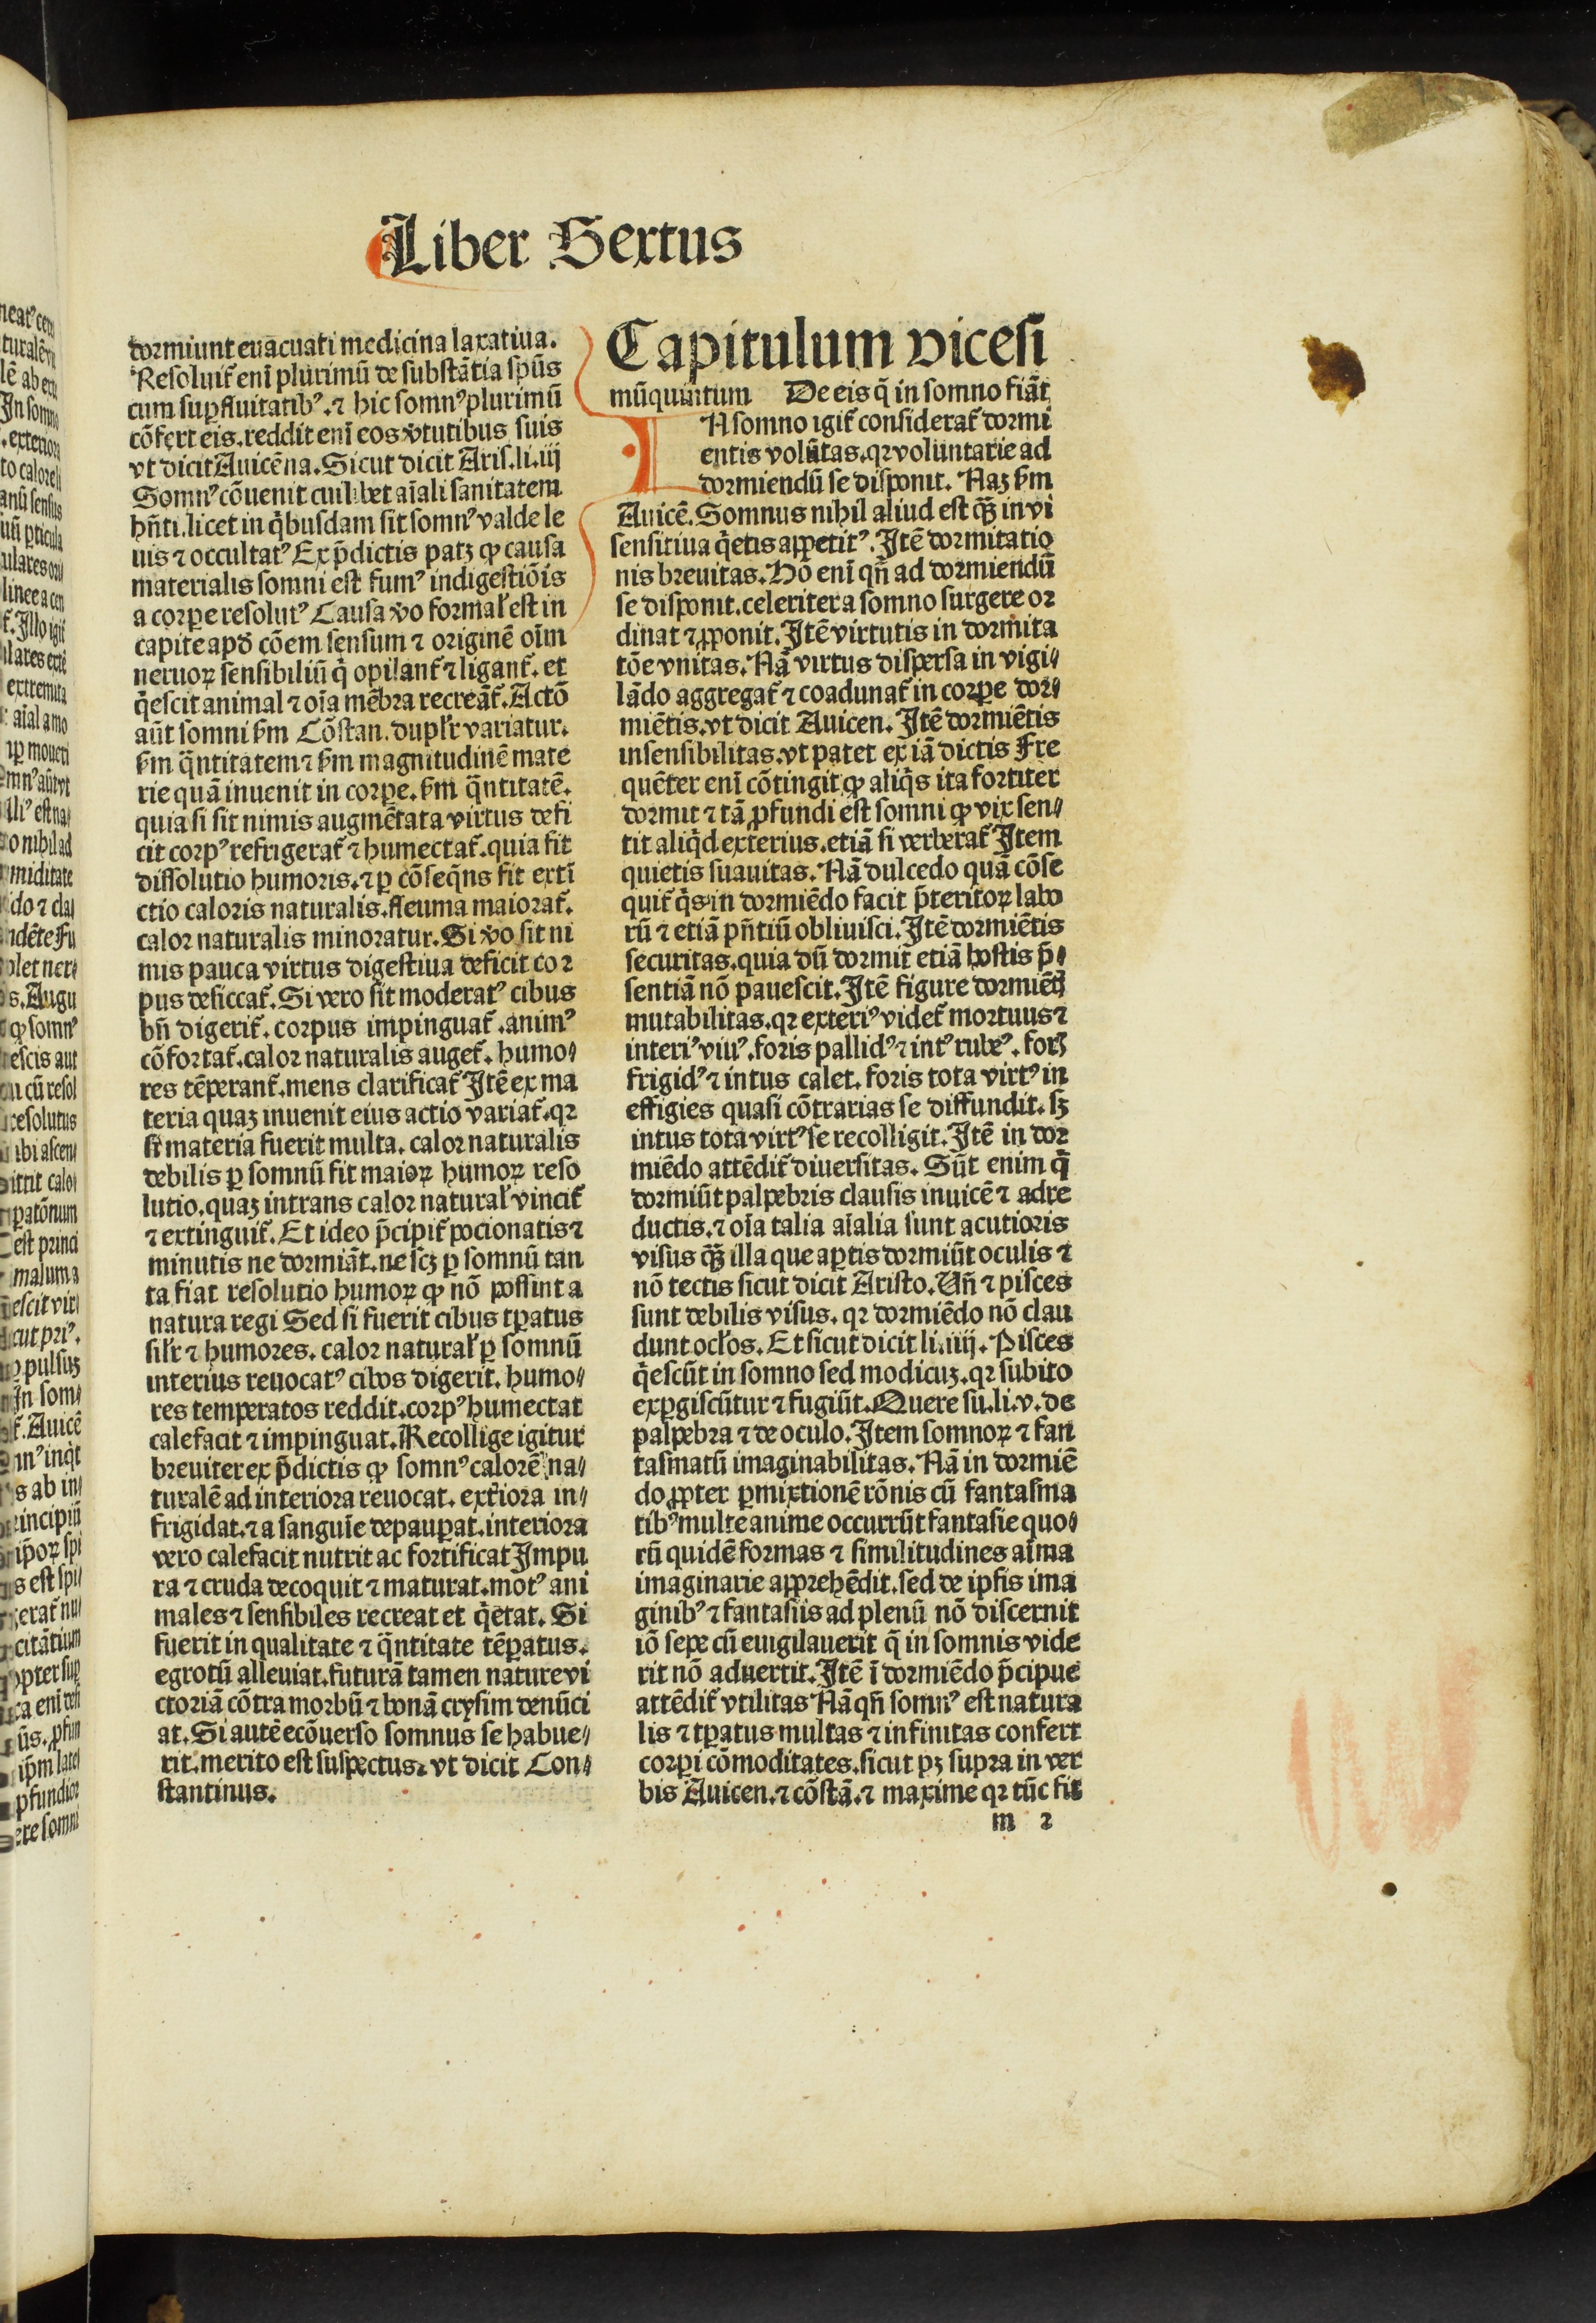 Liber Sextus
dormiunt euacuati medicina laxatiua.
Resoluit᷑ enī plurimū de substātia spūs
cum suꝑfluitatibꝰ.⁊ hic somnꝰ plurimū
cōfert eis.reddit enī eos v̓tutibus suis
vt dicit Auicēna.Sicut dicit Aris.li.iij
Somnꝰ cōuenit cuilibet aīali sanitatem
hn̄ti.licet in qͥbusdam sit somnꝰ valde le
uis ⁊ occultatꝰ Ex p̄dictis patꝫ ꝙ causa
materialis somni est fumꝰ indigestiōis
a corpe resolutꝰ Causa v̓o formal᷑ est in
capite apd̓ cōem sensum ⁊ originē oīm
neruoꝝ sensibiliū qͥ opilant᷑ ⁊ ligant᷑. et
qͥescit animal ⁊ oīa mēbra recreāt᷑.Actō
aūt somni ẜm Cōstan.dupl᷑r variatur.
ẜm qͣntitatem ⁊ ẜm magnitudinē mate
rie quā inuenit in corpe.ẜm qͣntitatē.
quia si sit nimis augmētata virtus defi
cit corpꝰ refrigerat᷑ ⁊ humectat᷑.quia fit
dissolutio humoris.⁊ ꝑ cōseqn̄s fit extī
ctio caloris naturalis.fleuma maiorat᷑.
calor naturalis minoratur.Si v̓o sit ni
mis pauca virtus digestiua deficit cor
pus desiccat᷑.Si vero sit moderatꝰ cibus
bn̄ digerit᷑.corpus impinguat᷑.animꝰ
cōfortat᷑.calor naturalis auget᷑.humo⸗
res tēperant᷑.mens clarificat᷑ Itē ex ma
teria quaꝫ inuenit eius actio variat᷑.qꝛ
si materia fuerit multa.calor naturalis
debilis ꝑ somnū fit maioꝝ humoꝝ reso
lutio.quaꝫ intrans calor natural᷑ vincit᷑
⁊ extinguit᷑.Et ideo p̄cipit᷑ pocionatis ⁊
minutis ne dormiāt.ne scꝫ ꝑ somnū tan
ta fiat resolutio humoꝝ ꝙ nō possint a
natura regi Sed si fuerit cibus tꝑatus
sil᷑r ⁊ humores.calor natural᷑ ꝑ somnū
interius reuocatꝰ cibos digerit.humo⸗
res temperatos reddit.corpꝰ humectat
calefacit ⁊ impinguat.Recollige igitur
breuiter ex p̄dictis ꝙ somnꝰ calorē na⸗
turalē ad interiora reuocat.ext̓iora in⸗
frigidat.⁊ a sanguīe depauꝑat.interiora
vero calefacit nutrit ac fortificat Impu
ra ⁊ cruda decoquit ⁊ maturat.motꝰ ani
males ⁊ sensibiles recreat et qͥetat. Si
fuerit in qualitate ⁊ qͣntitate tēꝑatus.
egrotū alleuiat.futurā tamen nature vi
ctoriā cōtra morbū ⁊ bonā crysim denūci
at.Si autē ecōuerso somnus se habue⸗
rit.merito est suspectus.vt dicit Con⸗
stantinus.
Capitulum vicesi
mūquintum De eis q̄ in somno fiāt
IA somno igit᷑ considerat᷑ dormi
entis volūtas.qꝛ voluntarie ad
dormiendū se disponit. Naꝫ ẜm
Auicē.Somnus nihil aliud est qͣꝫ in vi
sensitiua qͥetis appetitꝰ.Itē dormitatio
nis breuitas.Hō enī qn̄ ad dormiendū
se disponit.celeriter a somno surgere or
dinat ⁊ ꝓponit.Itē virtutis in dormita
tōe vnitas.Nā virtus dispersa in vigi⸗
lādo aggregat᷑ ⁊ coadunat᷑ in corpe dor⸗
miētis.vt dicit Auicen. Itē dormiētis
insensibilitas.vt patet ex iā dictis Fre
quēter enī cōtingit ꝙ aliqͥs ita fortiter
dormit ⁊ tā ꝓfundi est somni ꝙ vix sen⸗
tit aliqͥd exterius.etiā si verberat᷑ Item
quietis suauitas.Nā dulcedo quā cōse
quit᷑ qͥs in dormiēdo facit p̄teritoꝝ labo
rū ⁊ etiā pn̄tiū obliuisci.Itē dormiētis
securitas.quia dū dormit etiā hostis p̄⸗
sentiā nō pauescit.Itē figure dormiētꝭ
mutabilitas.qꝛ exteriꝰ videt᷑ mortuus ⁊
interiꝰ viuꝰ.foris pallidꝰ ⁊ intꝰ rubeꝰ.forꝭ
frigidꝰ ⁊ intus calet.foris tota virtꝰ in
effigies quasi cōtrarias se diffundit.sꝫ
intus tota virtꝰ se recolligit.Itē in dor
miēdo attēdit᷑ diuersitas. Sūt enim q̄
dormiūt palpebris clausis inuicē ⁊ adre
ductis.⁊ oīa talia aīalia sunt acutioris
visus qͣꝫ illa que aꝑtis dormiūt oculis ⁊
nō tectis sicut dicit Aristo.Un̄ ⁊ pisces
sunt debilis visus.qꝛ dormiēdo nō clau
dunt ocl᷑os.Et sicut dicit li.iiij.Pisces
qͥescūt in somno sed modicuꝫ.qꝛ subito
exꝑgiscūtur ⁊ fugiūt.Quere su.li.v.de
palpebra ⁊ de oculo.Item somnoꝝ ⁊ fan
tasmatū imaginabilitas.Nā in dormiē
do ꝓpter ꝑmixtionē rōnis cū fantasma
tibꝰ multe anime occurrūt fantasie quo⸗
rū quidē formas ⁊ similitudines aīma
imaginarie apprehēdit.sed de ipsis ima
ginibꝰ ⁊ fantasiis ad plenū nō discernit
iō sepe cū euigilauerit q̄ in somnis vide
rit nō aduertit.Itē ī dormiēdo p̄cipue
attēdit᷑ vtilitas Nā qn̄ somnꝰ est natura
lis ⁊ tꝑatus multas ⁊ infinitas confert
corpi cōmoditates.sicut pꝫ supra in ver
bis Auicen.⁊ cōstā.⁊ maxime qꝛ tūc fit
m 2